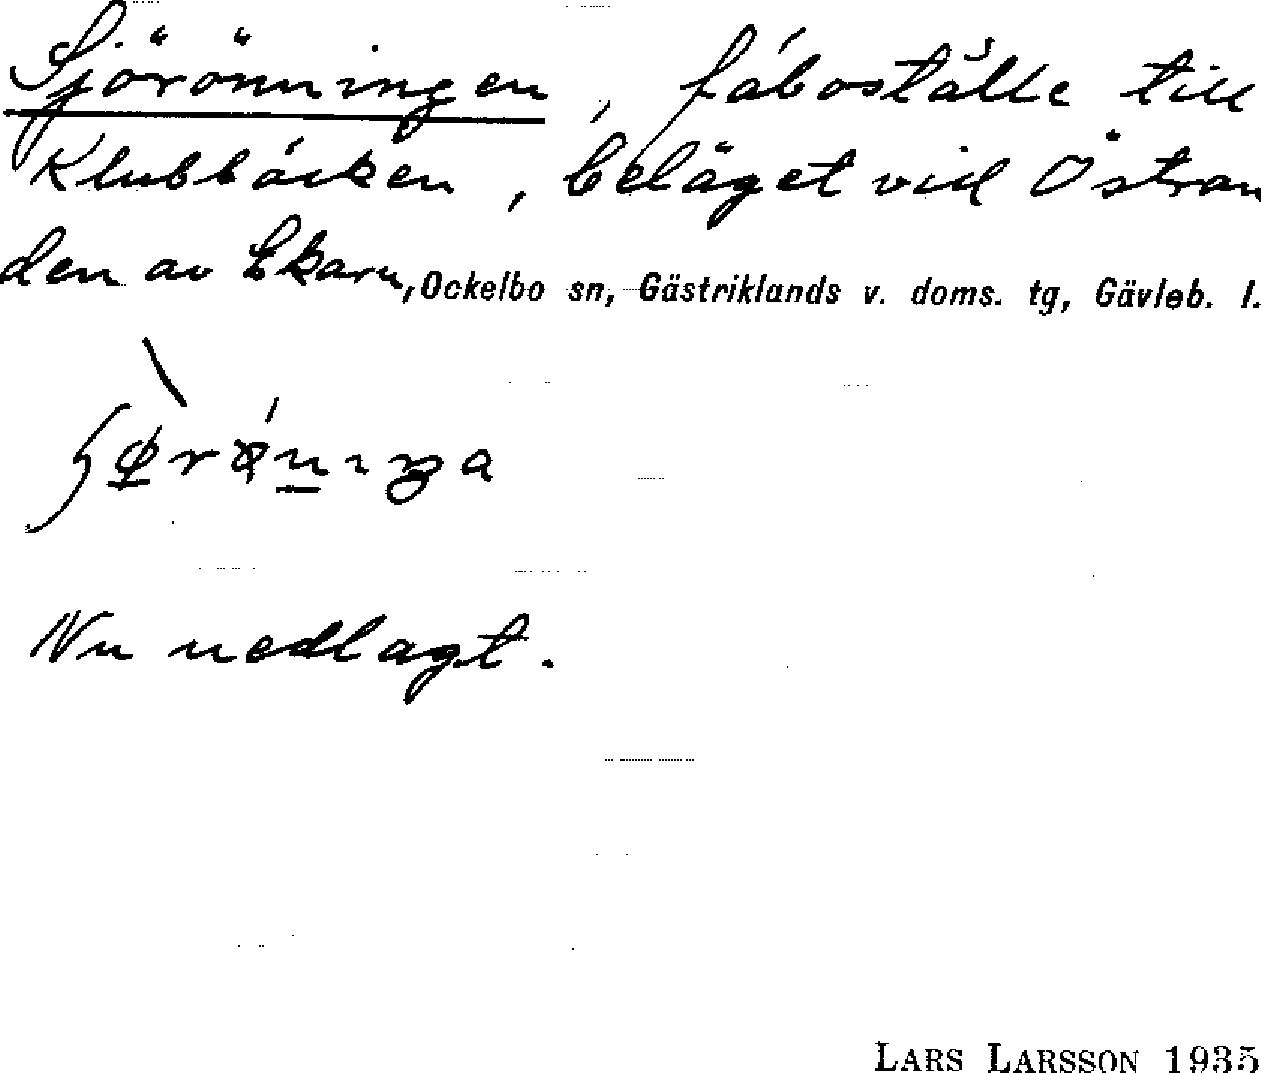 Sjörönningen, fäboställe till
Klubbäcken, beläget vid Östran
den av Ekaren, Ockelbo sn, Gästriklands v. doms. tg, Gävleb. l.
Nu nedlagt.
LARS LARSSON 1935